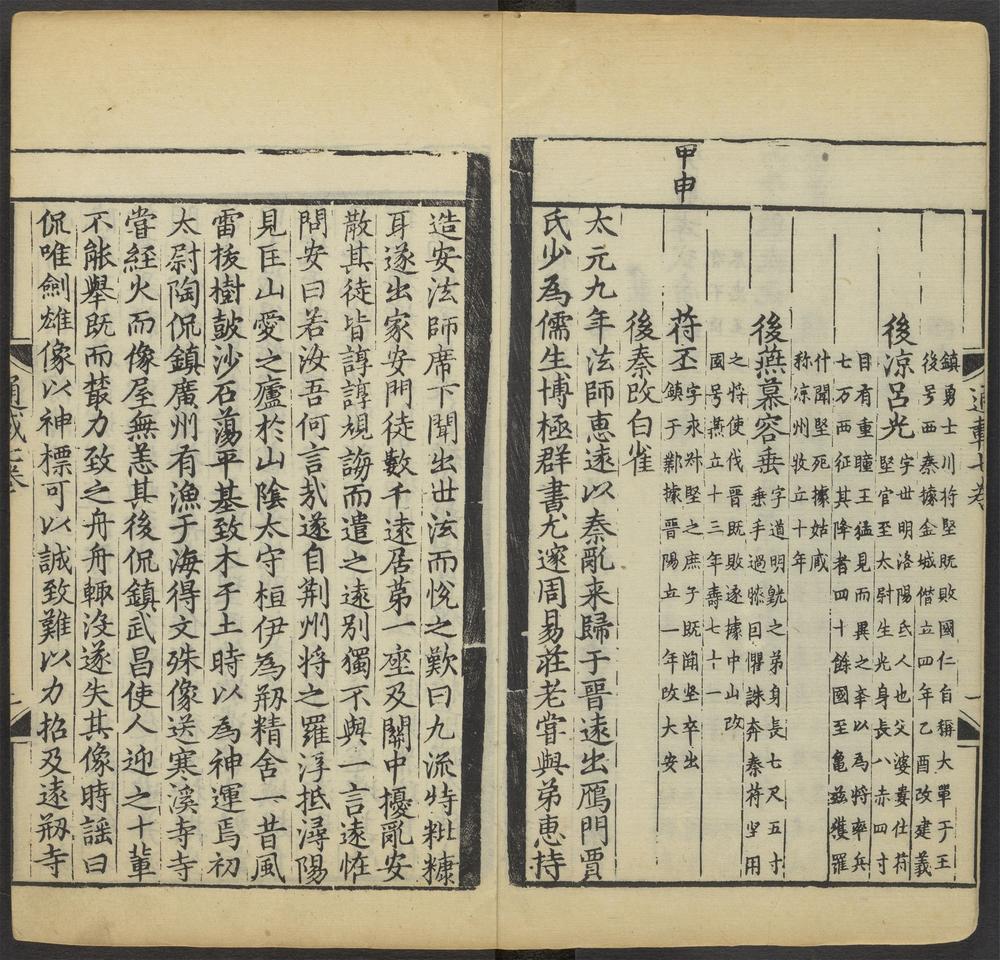 通載七卷
一
鎮勇士川将堅既敗國仁自稱大單于王
後号西秦據金城僣立四年乙酉改建義
後涼呂光字世明洛陽氐人也父婆婁仕苻
堅官至太尉生光身長八赤四寸
目有重瞳王猛見而異之奉以為将率兵
七万西征其降者四十餘國至龜兹獲羅
什聞堅死據姑臧
称凉州牧立十年
後燕慕容垂字道明皝之弟身長七尺五寸
垂手過膝因懼誅奔秦苻坚用
之将使伐晋既敗遂據中山改
國号燕立十三年壽七十一
苻丕字永叔堅之庶子既聞坚卒出
鎮于鄴據晋陽立一年改大安
後秦改白雀
甲申
太元九年法師惠遠以秦亂来歸于晉遠出鴈門賈
氏少為儒生博極群書尤邃周易莊老甞與弟惠持
造安法師席下聞出世法而悅之歎曰九流特粃糠
耳遂出家安門徒數千遠居苐一座及關中擾亂安
散其徒皆諄諄規誨而遣之遠别獨不與一言遠恠
問安曰若汝吾何言㢤遂自荆州将之羅浮抵潯陽
見匡山愛之廬於山陰太守桓伊為剏精舍一昔風
雷拔樹鼓沙石蕩平基致木于土時以為神運焉初
太尉陶侃鎮廣州有漁于海得文殊像送寒溪寺寺
甞經火而像屋無恙其後侃鎮武昌使人迎之十輩
不能舉既而藂力致之舟舟輙没遂失其像時謡曰
侃唯劍雄像以神標可以誠致難以力招及遠剏寺